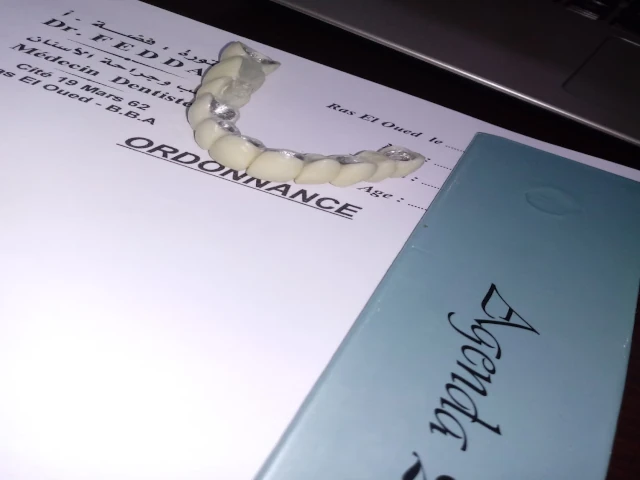 الدكتورة : فضة . أ
Dr. FEDDA
طب وجراحة الأسنان
Médecin Dentiste
Cité 19 Mars 62
Ras El Oued - B.B.A
Ras El Oued le ......
ORDONNANCE
Age : ......
Agenda